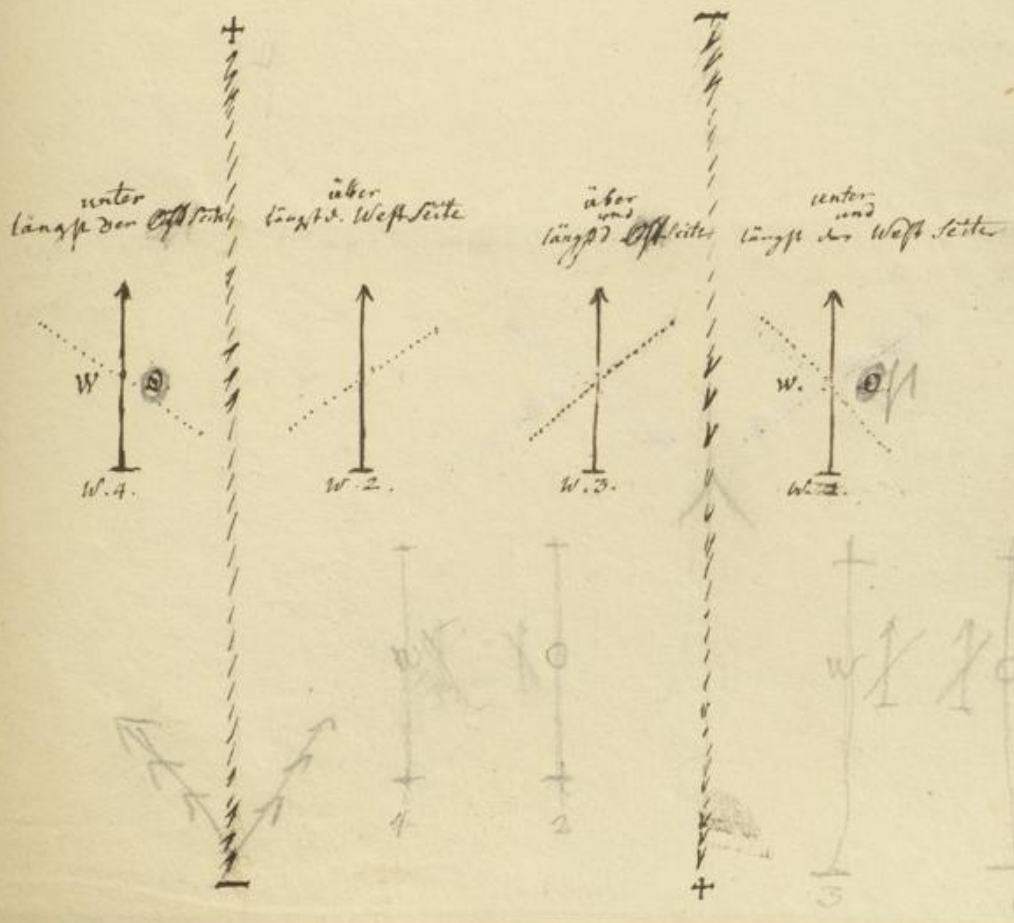 +
unter
längst der Ostseite
über
längst d. West Seite
über
und
längst d Ostseite
unter
und
längst der West Seite
W
O
w.
O
W. 4.
W. 2.
W. 3.
W
O
W
O
4
2
3
+